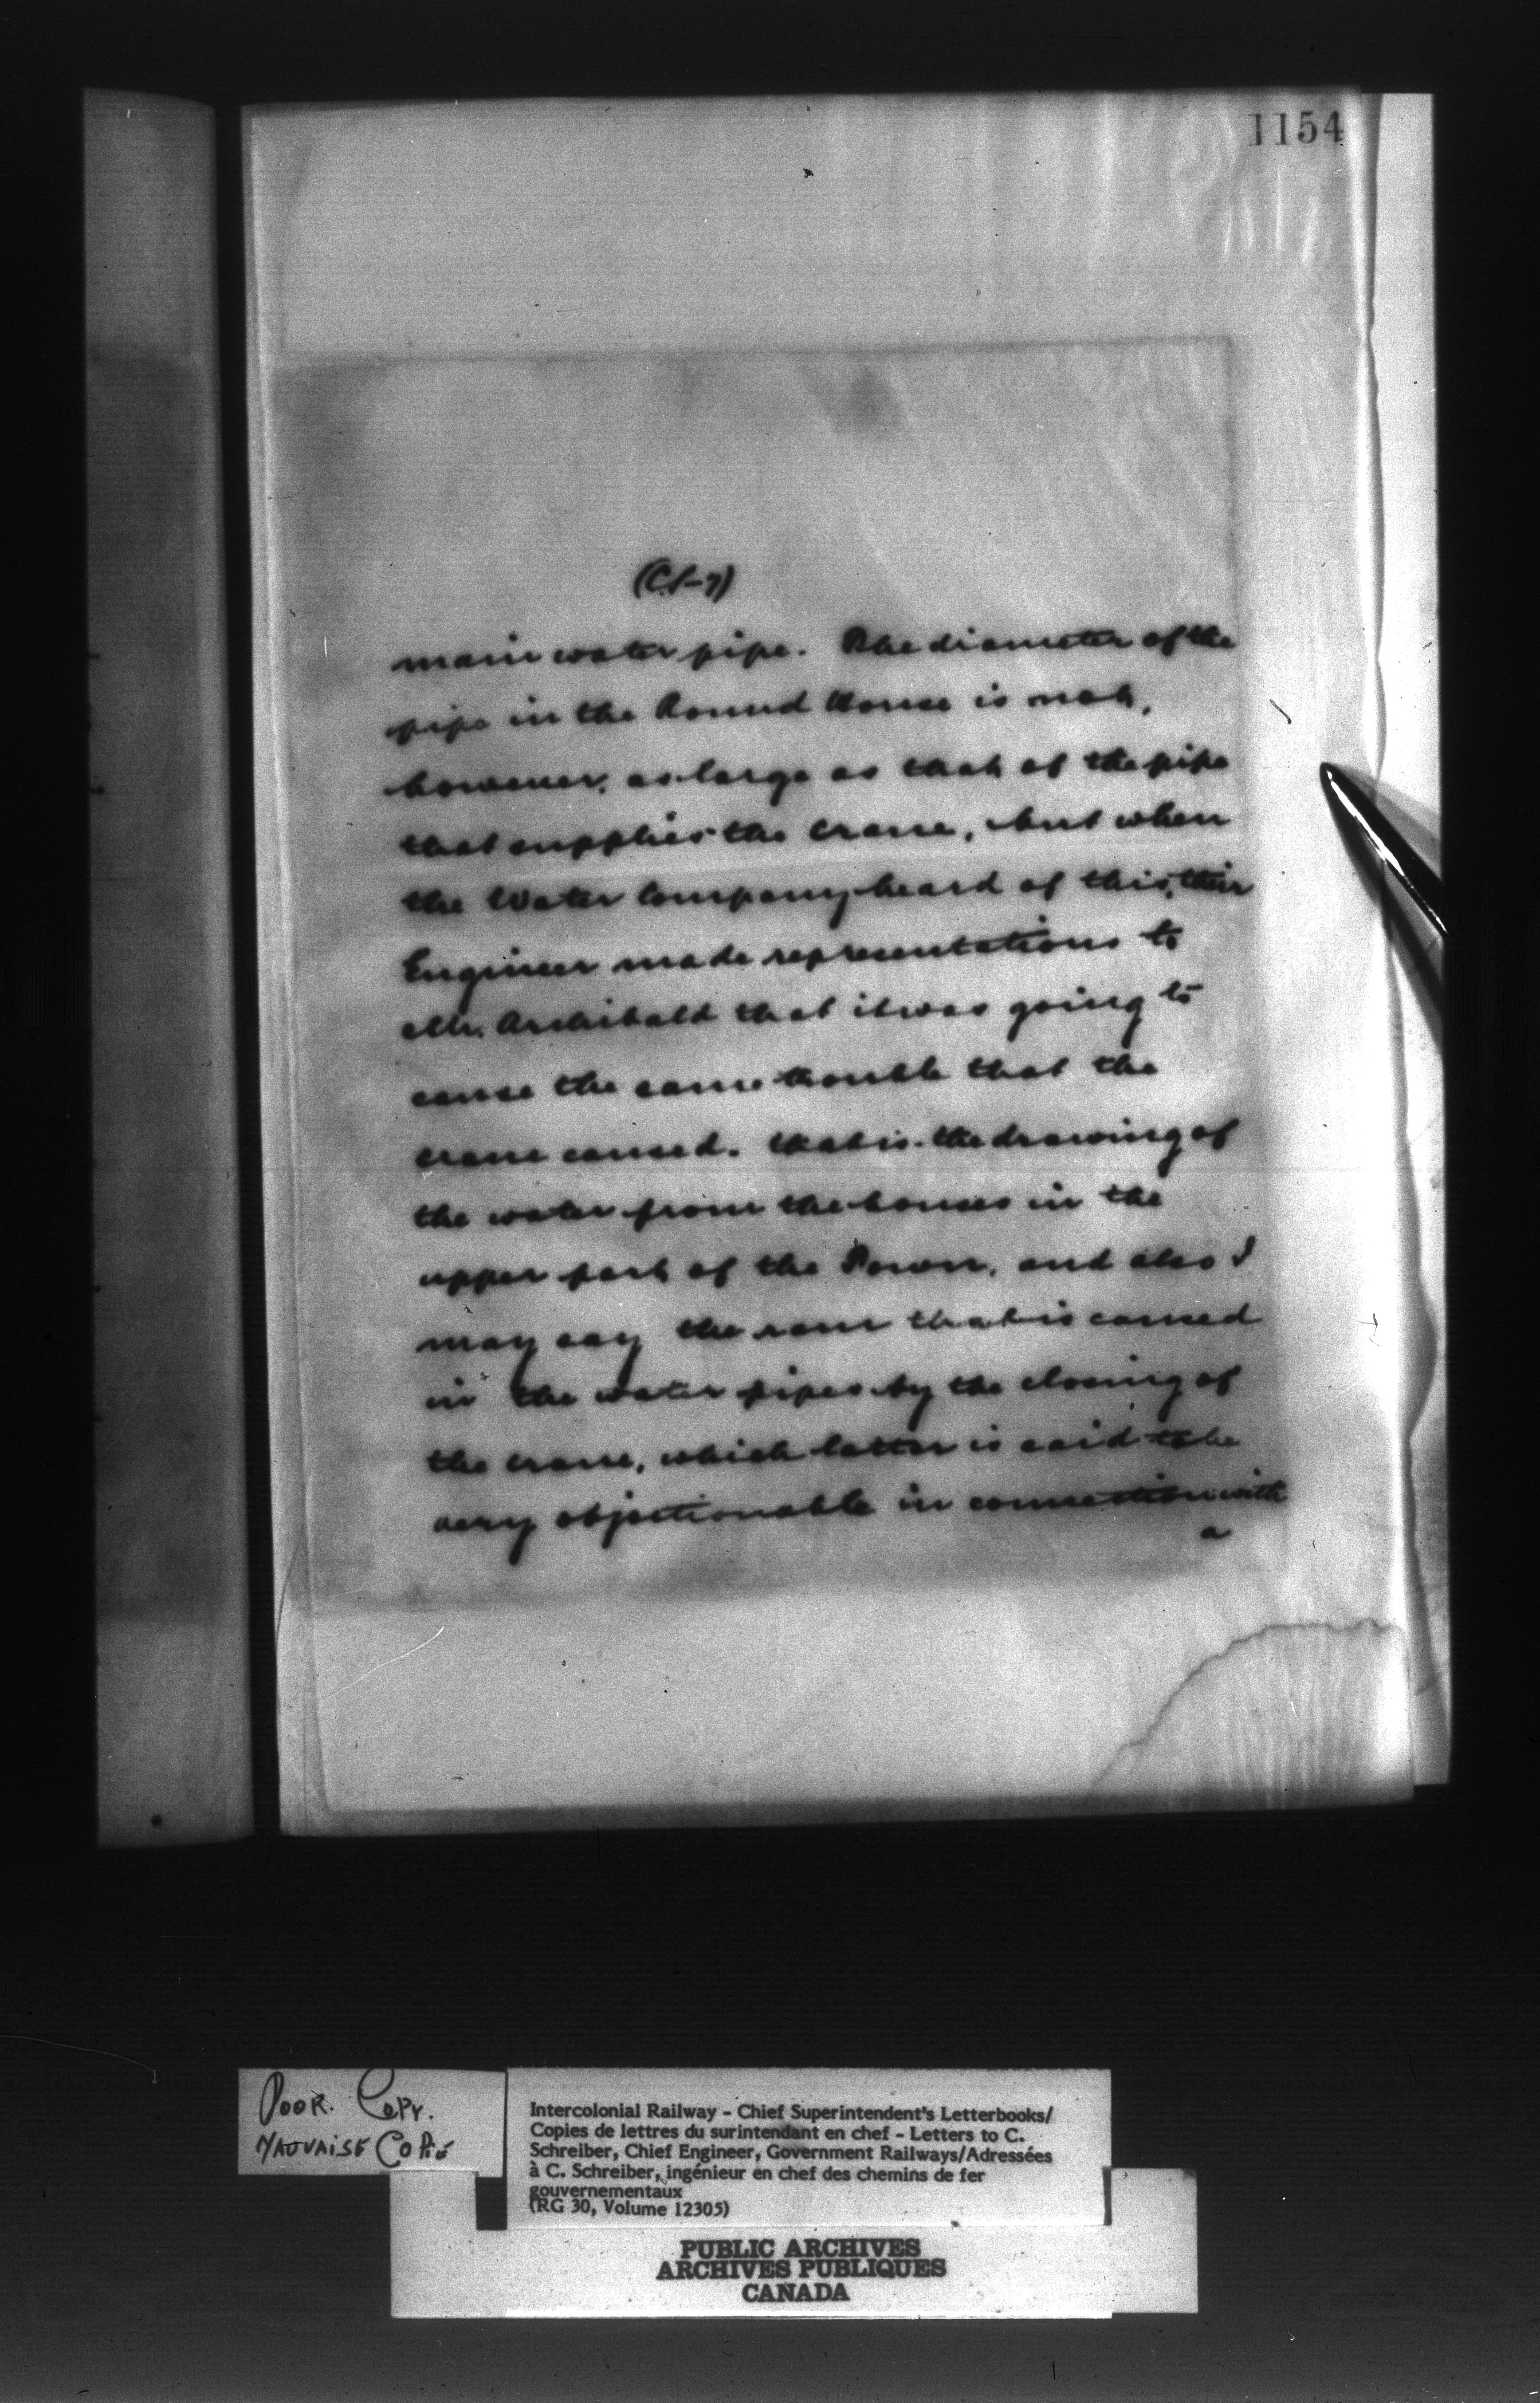 1154
(C.S-7)
main water pipe. The diameter of the
pipe in the Round House is not,
however, as large as that of the pipe
that supplies the crane, but when
the Water Company heard of this, their
Engineer made representations to
Mr. Archibald that it was going to
cause the same trouble that the
crane caused. that is the drawing of
the water from the houses in the
upper part of the Town, and also I
may say the ram that is caused
in the water pipes by the closing of
the crane, which latter is said to be
very objectionable in connection with
a
POOR. COPY.
MAUVAISE COPIE
Intercolonial Railway - Chief Superintendent's Letterbooks/
Copies de lettres du surintendant en chef - Letters to C.
Schreiber, Chief Engineer, Government Railways/Adressées
à C. Schreiber, ingénieur en chef des chemins de fer
gouvernementaux
(RG 30, Volume 12305)
PUBLIC ARCHIVES
ARCHIVES PUBLIQUES
CANADA